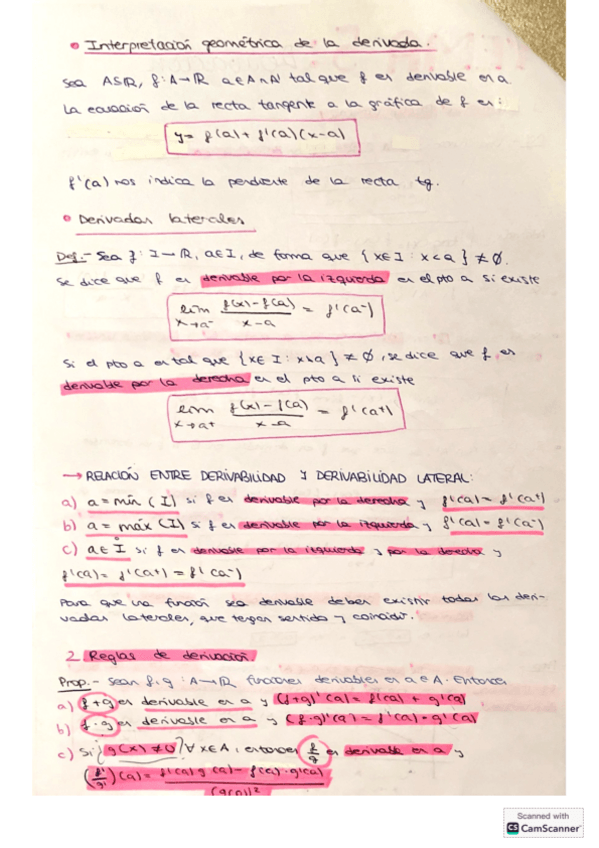 • Interpretación geométrica de la derivada.
Sea A⊆ℝ, f: A→ℝ a∈A∩A' tal que f es derivable en a
La ecuación de la recta tangente a la gráfica de f es:
y = f(a) + f'(a)(x-a)
f'(a) nos indica la pendiente de la recta tg.
• Derivadas laterales
Def.- Sea f: I→ℝ, a∈I, de forma que {x∈I : x<a} ≠ ∅.
Se dice que f es derivable por la izquierda en el pto a si existe
lim x→a⁻ f(x)-f(a) / x-a = f'(a⁻)
Si el pto a es tal que {x∈I : x>a} ≠ ∅, se dice que f es
derivable por la derecha en el pto a si existe
lim x→a⁺ f(x)-f(a) / x-a = f'(a⁺)
→ RELACIÓN ENTRE DERIVABILIDAD Y DERIVABILIDAD LATERAL:
a) a = mín (I) si f es derivable por la derecha y f'(a) = f'(a⁺)
b) a = máx (I) si f es derivable por la izquierda y f'(a) = f'(a⁻)
c) a∈I̊ si f es derivable por la izquierda y por la derecha y
f'(a) = f'(a⁺) = f'(a⁻)
Para que una función sea derivable deben existir todas las deri-
vadas laterales, que tengan sentido y coincidir.
2. Reglas de derivación
Prop.- Sean f, g : A→ℝ funciones derivables en a∈A. Entonces
a) f+g es derivable en a y (f+g)'(a) = f'(a) + g'(a)
b) f·g es derivable en a y (f·g)'(a) = f'(a) · g'(a)
c) Si g(x) ≠ 0 ∀x∈A, entonces f/g es derivable en a y
(f/g)'(a) = f'(a) g(a) - f(a) · g'(a) / (g(a))²
Scanned with
CS CamScanner